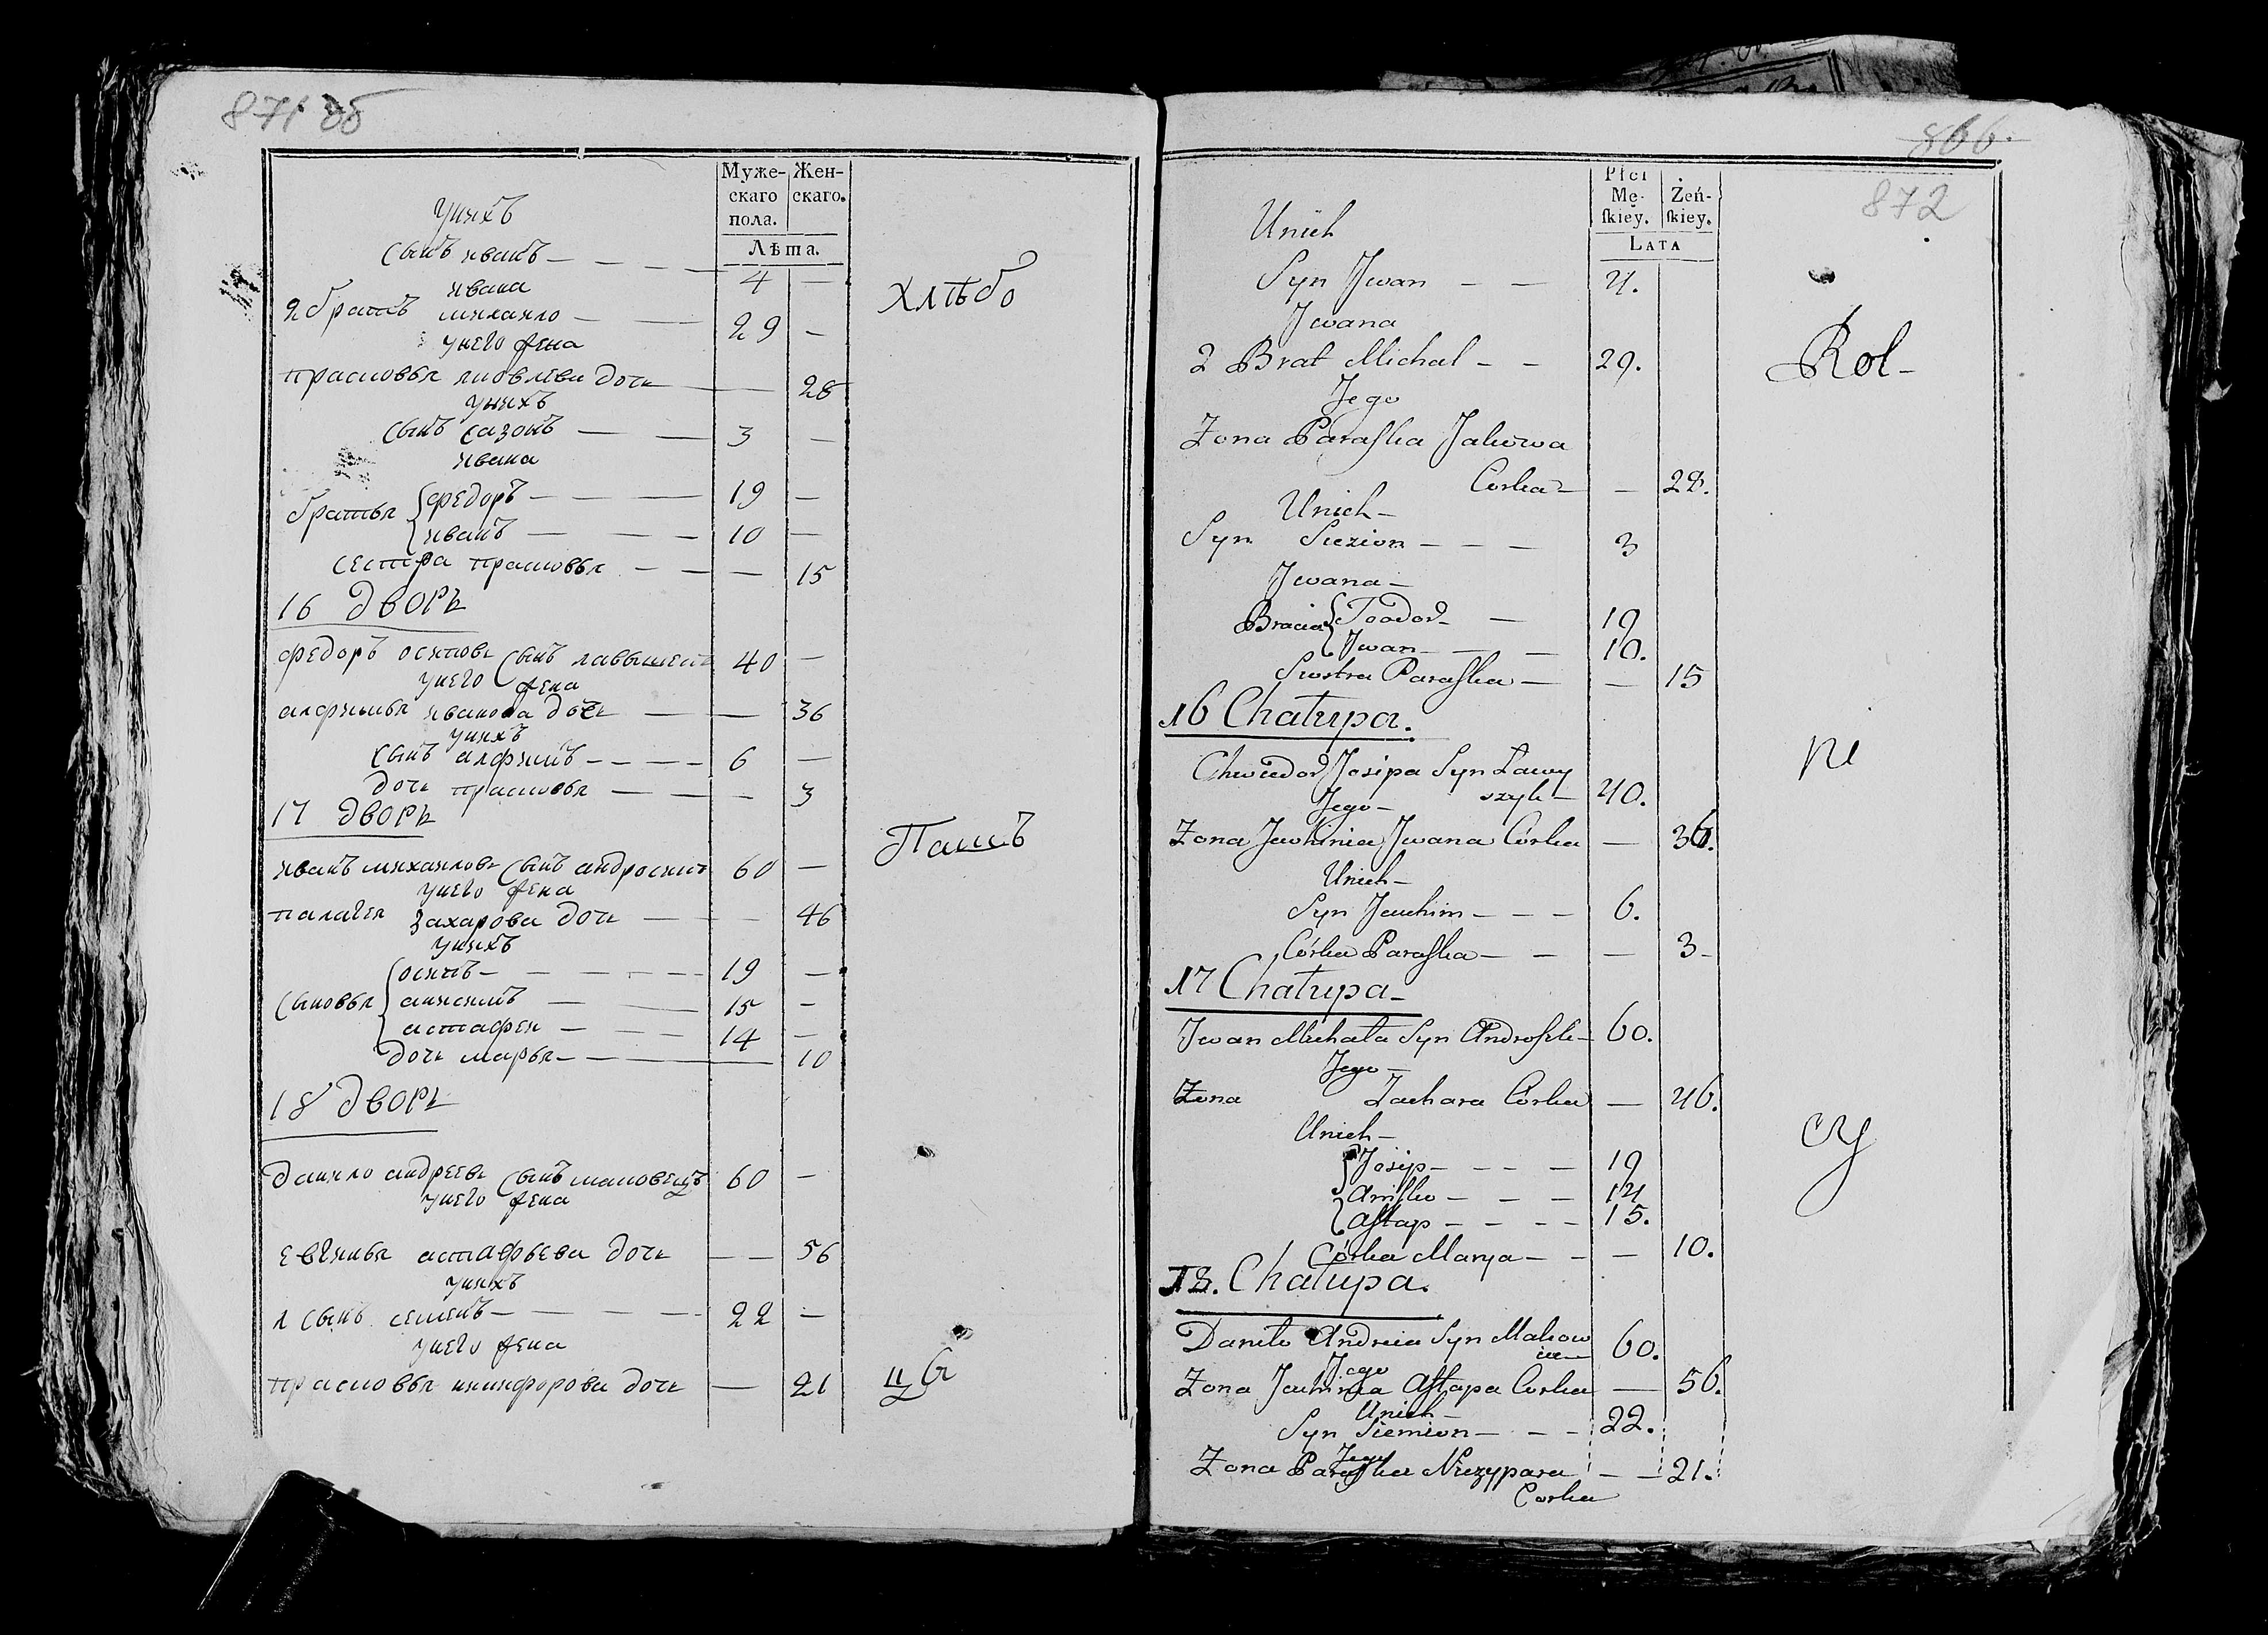 871 об
Муже- Жен-
скаго скаго.
пола.
Лѣта.
унихъ
сынъ иванъ — — — — 4 —
ивана
2 братъ михаило — — 29 —
унего жена
прасковья яковлева дочь — — 28
унихъ
сынъ сазонъ — — 3 —
ивана
братья федоръ — — — 19 —
иванъ — — — 10 —
сестра прасковья — — — 15
16 дворъ
федоръ осиповъ сынъ 40 —
унего жена
иванова дочь — — 36
унихъ
сынъ — — — — 6 —
дочь прасковья — — — 3
17 дворъ
иванъ михаиловъ сынъ 60 —
унего жена
палагея захарова дочь — — 46
унихъ
сыновья осипъ — — — — — 19 —
— — 15 —
астафеи — — — 14 —
дочь марья — — — 10
18 дворъ
данило андреевъ сынъ маковецъ 60 —
унего жена
евгинья астафьева дочь — — 56
унихъ
1 сынъ семенъ — — — — 22 —
унего жена
прасковья никифорова дочь — 21
хлѣбо
Пашъ
цы
866.
872
Płci
Mę- Żeń-
skiey. skiey.
LATA
Unich
Syn Jwan — — 4.
Jwana
2 Brat Michal — — 29.
Jego
Zona Paraska Jakowa
Corka — — 28.
Unich —
Syn — — — 3
Jwana —
Bracia — 19
Jwan — — — 10.
Siostra Paraska — — 15
16 Chałupa.
Chwiedor Josipa Syn Ławy
szyk — 40.
Jego —
Zona Jewhinia Jwana Córka — 36.
Unich —
Syn Jauchim — — — 6.
Córka Paraska — — — 3 —
17 Chałupa —
Jwan Michała Syn — 60.
Jego —
Zona Zachara Córka — 46.
Unich —
Josip — — — — 19
— — — 14
Astap — — — — 15.
Córka Marya — — — 10.
18. Chałupa.
Daniło Andreia Syn Makow
iec — 60.
Jego
Zona Astapa Corka — 56.
Unich —
Syn Siemion — — — 22.
Jego
Zona Paraska Niczypara — — 21.
Corka
Rol-
ni
cy